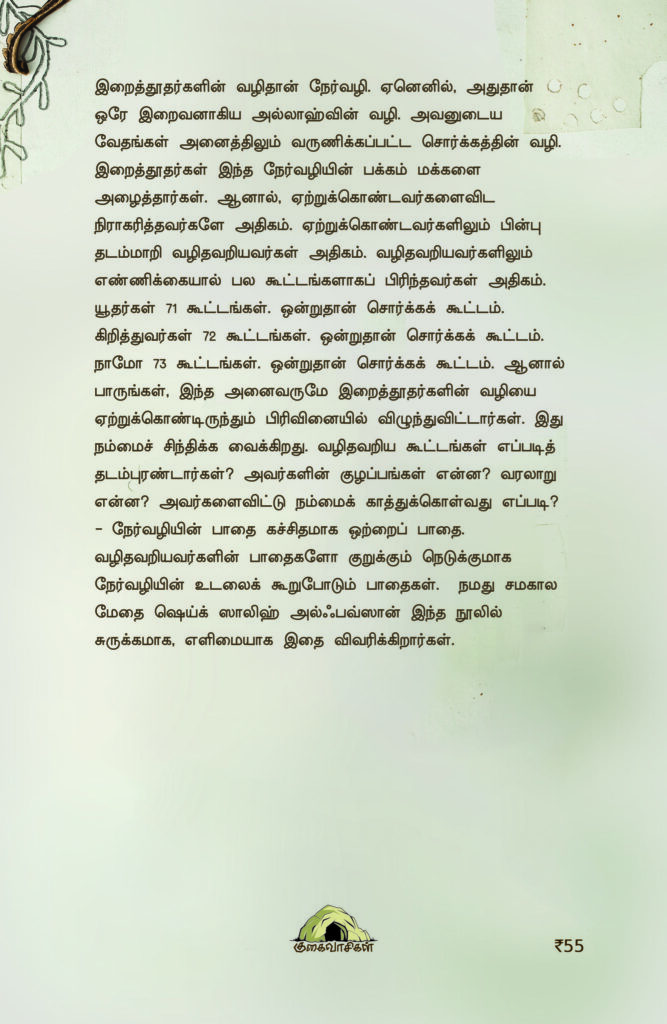 இறைத்தூதர்களின் வழிதான் நேர்வழி. ஏனெனில், அதுதான்
ஒரே இறைவனாகிய அல்லாஹ்வின் வழி. அவனுடைய
வேதங்கள் அனைத்திலும் வருணிக்கப்பட்ட சொர்க்கத்தின் வழி.
இறைத்தூதர்கள் இந்த நேர்வழியின் பக்கம் மக்களை
அழைத்தார்கள். ஆனால், ஏற்றுக்கொண்டவர்களைவிட
நிராகரித்தவர்களே அதிகம். ஏற்றுக்கொண்டவர்களிலும் பின்பு
தடம்மாறி வழிதவறியவர்கள் அதிகம். வழிதவறியவர்களிலும்
எண்ணிக்கையால் பல கூட்டங்களாகப் பிரிந்தவர்கள் அதிகம்.
யூதர்கள் 71 கூட்டங்கள். ஒன்றுதான் சொர்க்கக் கூட்டம்.
கிறித்துவர்கள் 72 கூட்டங்கள். ஒன்றுதான் சொர்க்கக் கூட்டம்.
நாமோ 73 கூட்டங்கள். ஒன்றுதான் சொர்க்கக் கூட்டம். ஆனால்
பாருங்கள், இந்த அனைவருமே இறைத்தூதர்களின் வழியை
ஏற்றுக்கொண்டிருந்தும் பிரிவினையில் விழுந்துவிட்டார்கள். இது
நம்மைச் சிந்திக்க வைக்கிறது. வழிதவறிய கூட்டங்கள் எப்படித்
தடம்புரண்டார்கள்? அவர்களின் குழப்பங்கள் என்ன? வரலாறு
என்ன? அவர்களைவிட்டு நம்மைக் காத்துக்கொள்வது எப்படி?
- நேர்வழியின் பாதை கச்சிதமாக ஒற்றைப் பாதை.
வழிதவறியவர்களின் பாதைகளோ குறுக்கும் நெடுக்குமாக
நேர்வழியின் உடலைக் கூறுபோடும் பாதைகள். நமது சமகால
மேதை ஷெய்க் ஸாலிஹ் அல்ஃபவ்ஸான் இந்த நூலில்
சுருக்கமாக, எளிமையாக இதை விவரிக்கிறார்கள்.
குகைவாசிகள்
₹55